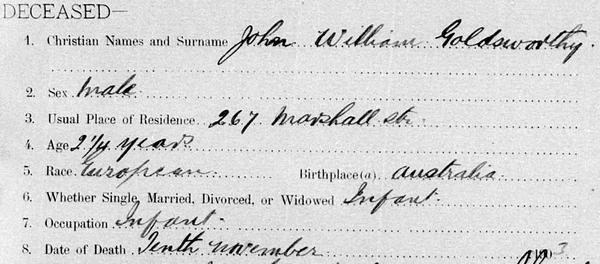 DECEASED—
1. Christian Names and Surname John William Goldsworthy.
2. Sex Male
3. Usual Place of Residence 267 Marshall Str.
4. Age 2¼ years
5. Race European Birthplace(a) Australia
6. Whether Single, Married, Divorced, or Widowed Infant.
7. Occupation Infant.
8. Date of Death Tenth November